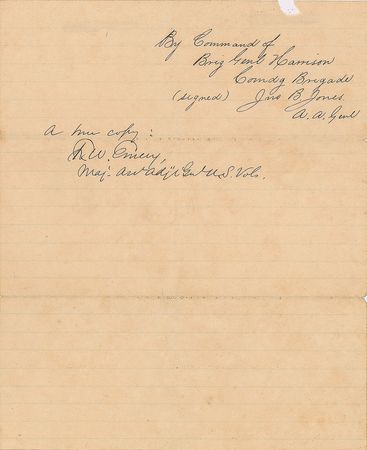 By Command of
Brig Genl Harrison
Comdg Brigade
(signed) Jno B Jones
A. A. Genl
A true copy:
W. Emery,
Maj. Asst Adjt Genl U.S. Vols.